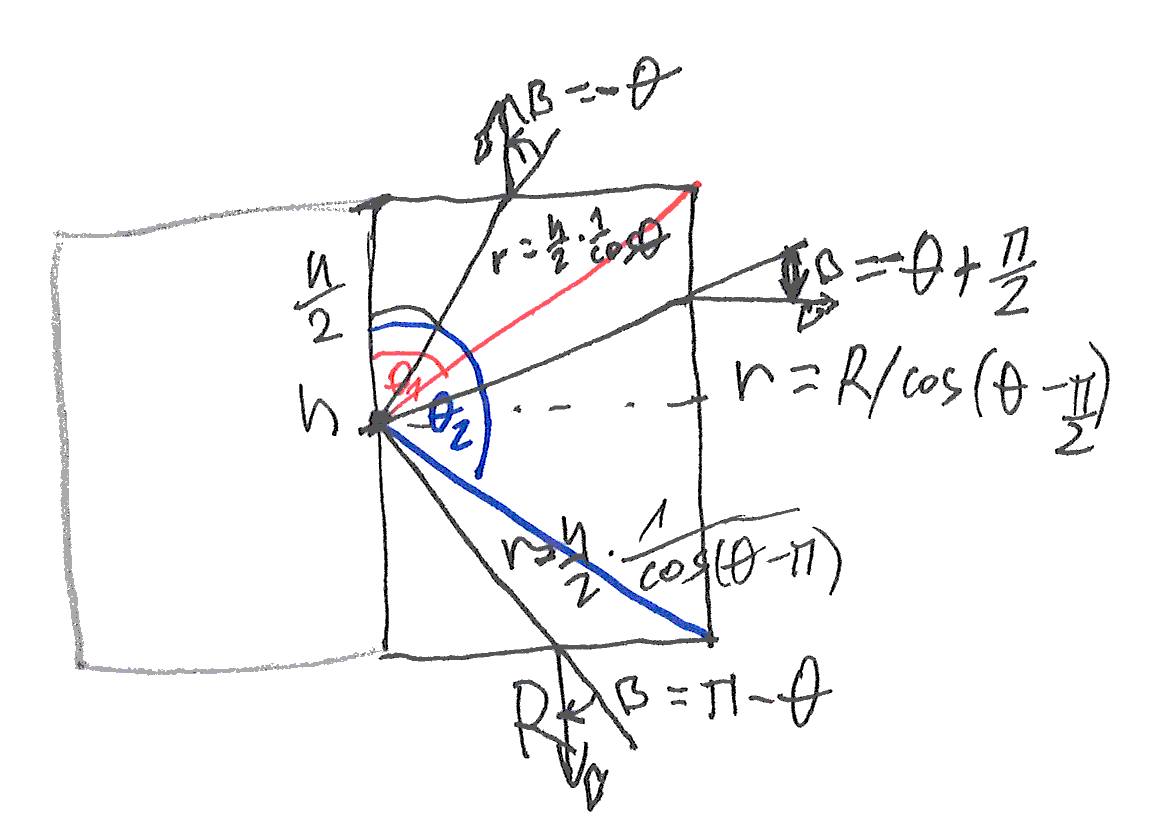 B = -θ
r = h/2 · 1/cosθ
h/2
B = -θ + π/2
θ1
r = R/cos(θ - π/2)
h
θ2
r = h/2 · 1/cos(θ - π)
R
B = π - θ